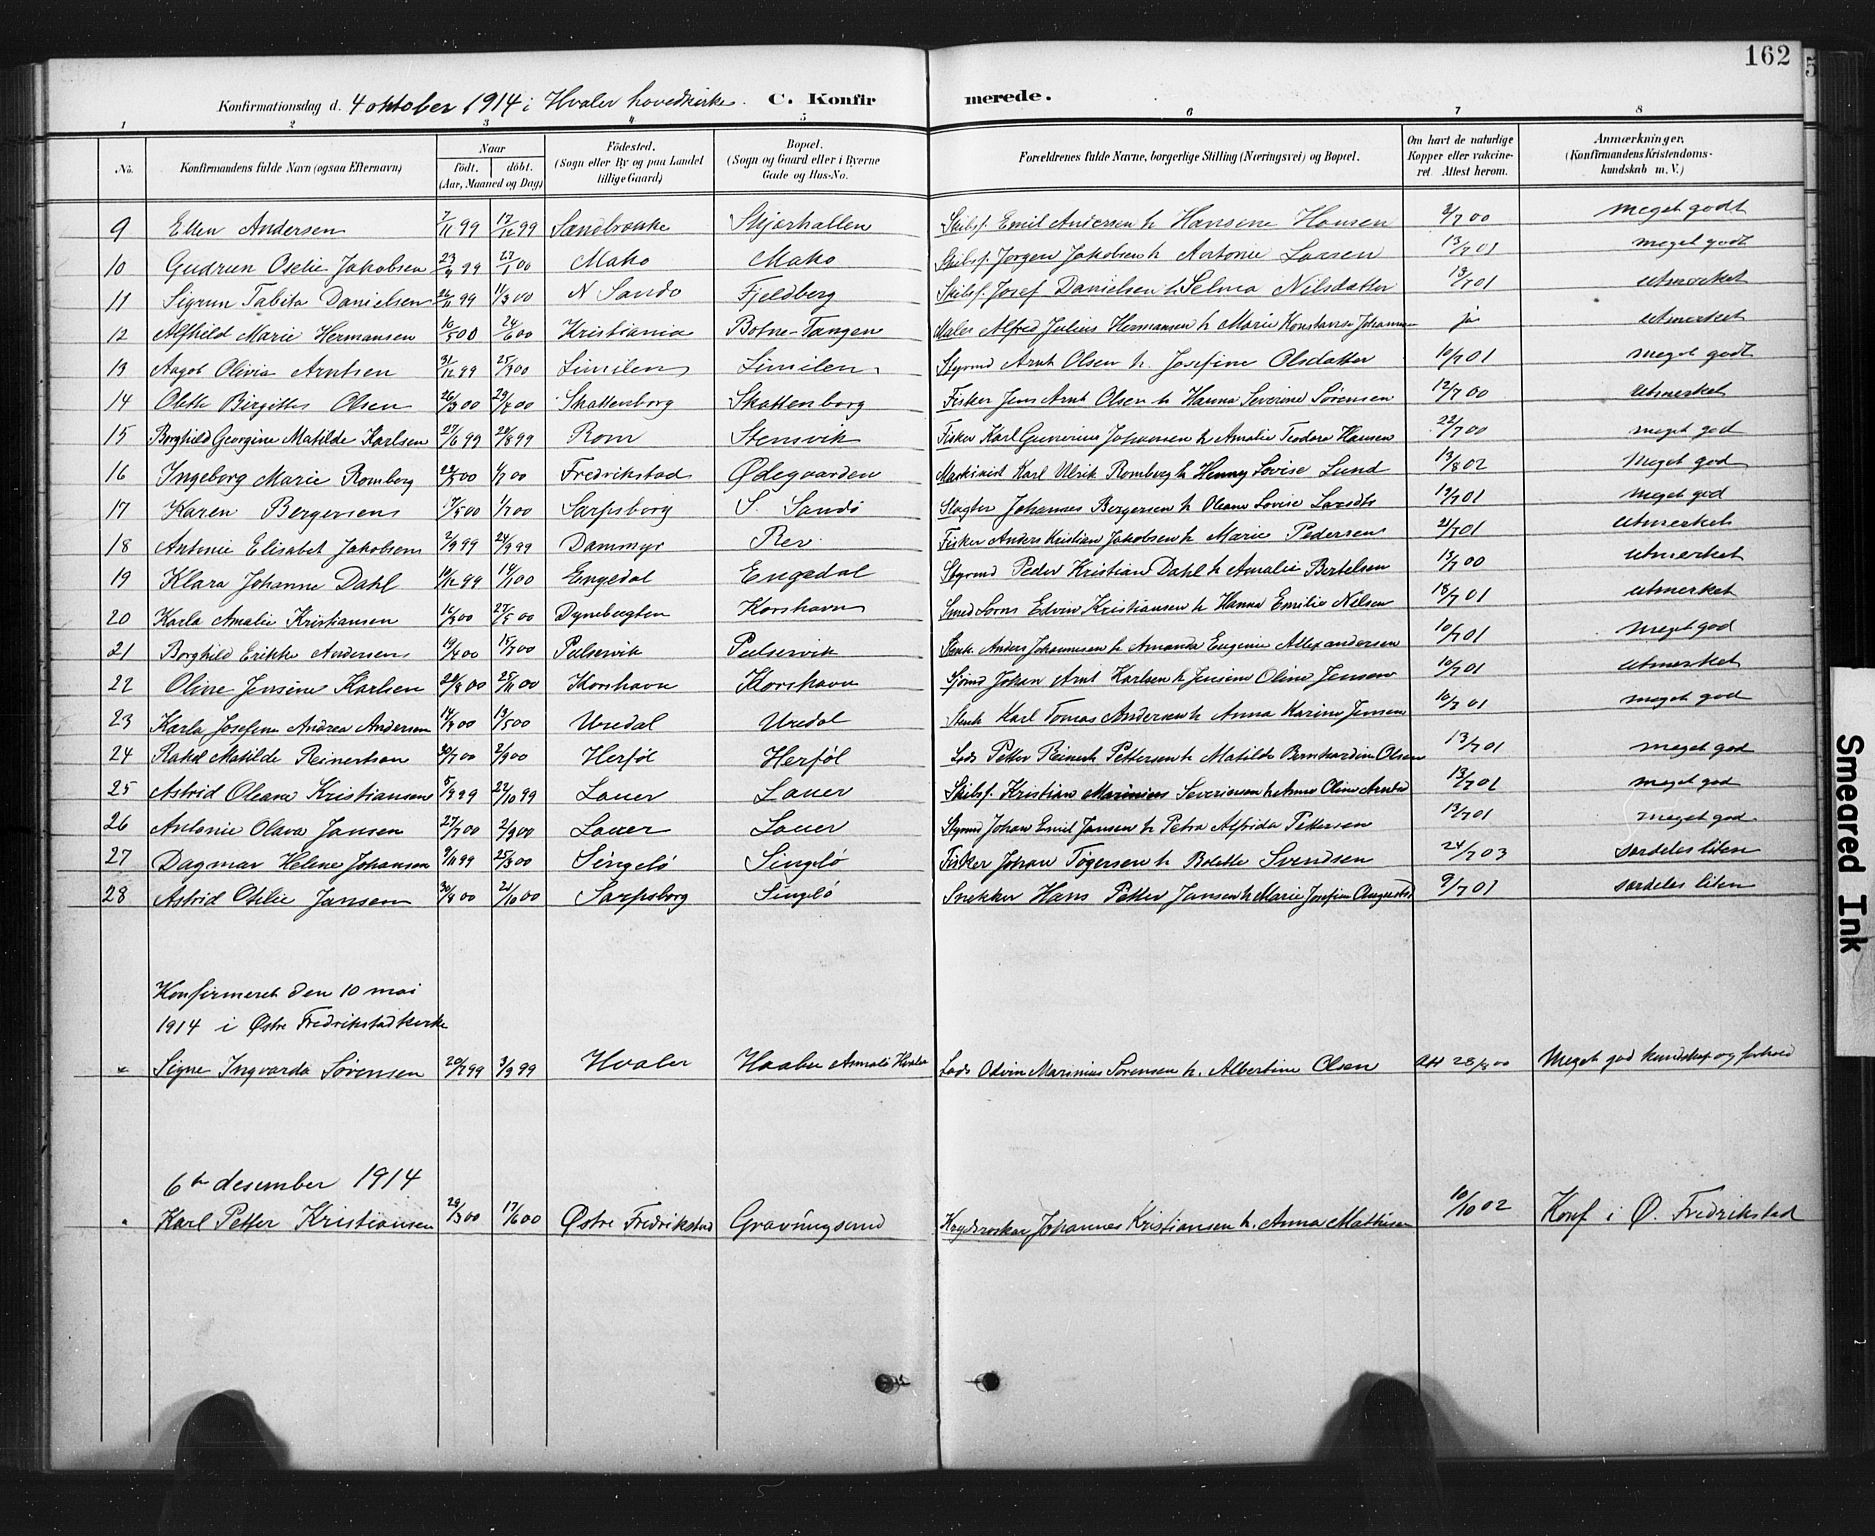 162
Konfirmationsdag d. 4 oktober 1914 i Hvaler hovedkirke. C. Konfirmerede.
1 2 3 4 5 6 7 8
No. Konfirmandens fulde Navn (ogsaa Efternavn) Naar født. døbt. (Aar, Maaned og Dag) Fødested. (Sogn eller By og paa Landet tillige Gaard) Bopæl. (Sogn og Gaard eller i Byerne Gade og Hus-No. Forældrenes fulde Navne, borgerlige Stilling (Næringsvei) og Bopæl. Om havt de naturlige Kopper eller vaccineret Attest herom. Anmærkninger, (Konfirmandens Kristendomskundskab m. V.)
9 Ellen Andersen 7/11 99 17/12 99 Sandbrække Skjærhallen Skibsf. Emil Andersen h Hansene Hansen 3/7 00 meget godt
10 Gudrun Oselie Jakobsen 23/9 99 27/1 00 Makø Makø Skibsf. Jørgen Jakobsen h Antonie Larsen 13/7 01 meget godt
11 Sigrun Tabita Danielsen 26/11 99 11/3 00 N Sandø Fjeldberg Skibsf. Josef Danielsen h Selma Nilsdatter 13/7 01 utmerket
12 Alfhild Marie Hermansen 16/5 00 24/6 00 Kristiania Botne-Tangen Maler Alfred Julius Hermansen h Marie Konstanse Johannes ja utmerket
13 Aagot Olivia Arntsen 31/12 99 25/3 00 Limilen Limilen Styrmd Arnt Olsen h. Josefine Olsdatter 10/7 01 meget godt
14 Olette Birgitte Olsen 26/3 00 29/4 00 Skattenborg Skattenborg Fisker Jens Arnt Olsen h Hanna Severine Sørensen 12/7 00 utmerket
15 Borghild Georgine Matilde Karlsen 27/6 99 20/8 99 Rom Stensvik Fisker Karl Gunerius Johansen h Amalie Teodora Hansen 22/7 00 meget god
16 Ingeborg Marie Romberg 22/5 00 1/7 00 Fredrikstad Ødegaarden Maskinist Karl Ulrik Romberg h Henny Lovise Lund 13/8 02 Meget god
17 Karen Bergersen 7/5 00 1/7 00 Sarpsborg S. Sandø Slagter Johannes Bergersen h Oleane Lovise Larsdtr 19/7 01 meget god
18 Antonie Elisabet Jakobsen 2/9 99 24/9 99 Dammyr Rev Fisker Anders Kristian Jakobsen h Marie Pedersen 21/7 01 utmerket
19 Klara Johanne Dahl 10/12 99 14/1 00 Engedal Engedal Styrmd Peder Kristian Dahl h Amalie Bertelsen 13/7 00 utmerket
20 Karla Amalie Kristiansen 16/3 00 27/5 00 Dynebugten Korshavn Smed Lorns Edvin Kristiansen h Hanna Emilie Nilsen 18/7 01 utmerket
21 Borghild Erikke Andersen 19/4 00 15/7 00 Pulservik Pulservik Stenh. Anders Johannesen h Amanda Eugenie Allexandersen 10/7 01 Meget god
22 Oline Jensine Karlsen 29/8 00 25/11 00 Korshavn Korshavn Sjømd Johan Arnt Karlsen h Jensine Oline Jensen 10/7 01 utmerket
23 Karla Josefine Andrea Andersen 14/3 00 13/5 00 Uredal Uredal Stenh Karl Tomas Andersen h Anna Karine Jensen 10/7 01 meget god
24 Rakel Matilde Reinertsen 30/7 00 2/9 00 Herføl Herføl Lods Petter Reinert Pettersen h Matilde Bernhardine Olsen 13/7 01 meget god
25 Astrid Oleane Kristiansen 5/9 99 22/10 99 Lauer Lauer Skibsf. Kristian Marinius Severinsen h Anne Oline Arntsd 13/7 01 meget god
26 Antonie Olava Jansen 27/7 00 2/9 00 Lauer Lauer Styrmd Johan Emil Jansen h Petra Alfrida Pettersen 13/7 01 meget god.
27 Dagmar Helene Johansen 9/11 99 25/3 00 Singelø Singelø Fisker Johan Tøgersen h Bolette Svendsen 24/7 03 særdeles liten
28 Astrid Otilie Jansen 30/8 00 21/10 00 Sarpsborg Singelø Snekker Hans Petter Jansen h Marie Josefine Augustsd 9/7 01 særdeles liten
Konfirmeret den 10 mai
1914 i Østre Fredrikstad kirke
" Signe Ingvarda Sørensen 20/7 99 3/9 99 Hvaler Haaber Asmalø Hvaler Lods Odvin Marinius Sørensen h. Albertine Olsen Att 28/8 00 Meget god kundskap og forhold
6te desember 1914
" Karl Petter Kristiansen 29/3 00 17/6 00 Østre Fredrikstad Gravningsund Johannes Kristiansen h. Anna Mathisen 10/10 02 Konf i Ø. Fredrikstad
Smeared Ink